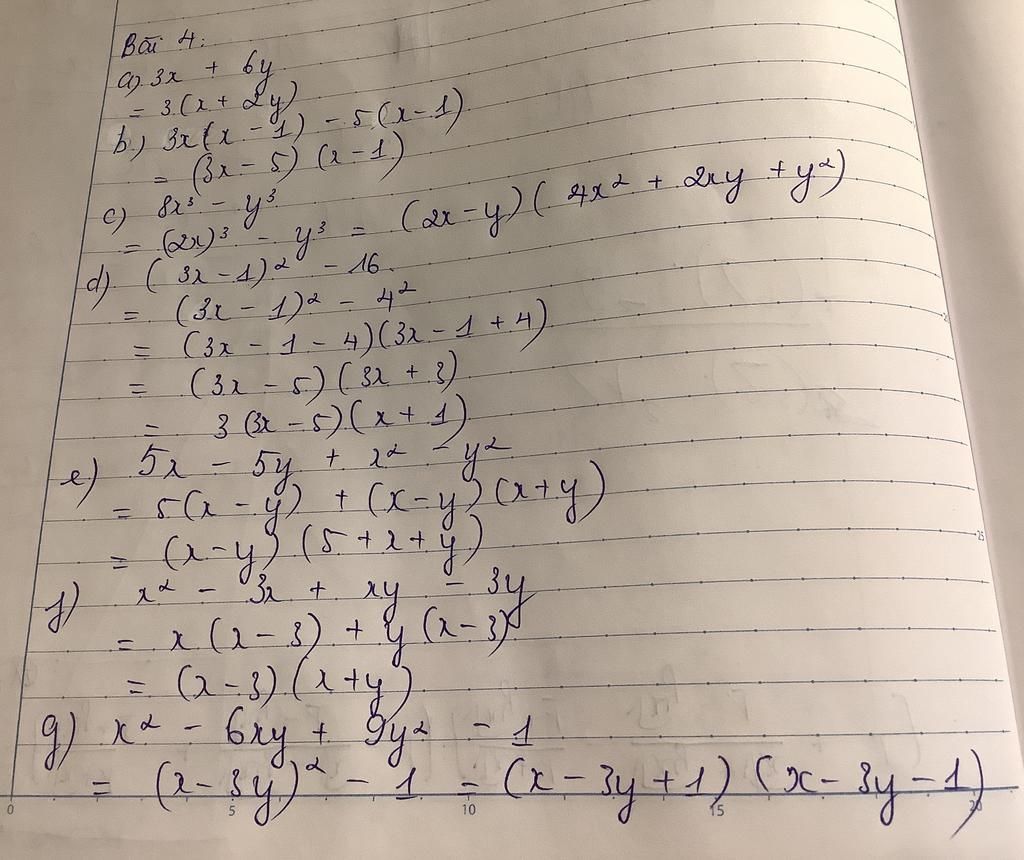 Bài 4:
a) 3x + 6y
= 3(x + 2y)
b) 3x(x - 1) - 5(x - 1)
= (3x - 5)(x - 1)
c) 8x³ - y³
= (2x)³ - y³ = (2x - y)(4x² + 2xy + y²)
d) (3x - 1)² - 16.
= (3x - 1)² - 4²
= (3x - 1 - 4)(3x - 1 + 4)
= (3x - 5)(3x + 3)
= 3(3x - 5)(x + 1)
e) 5x - 5y + x² - y²
= 5(x - y) + (x - y)(x + y)
= (x - y)(5 + x + y)
f) x² - 3x + xy - 3y
= x(x - 3) + y(x - 3)
= (x - 3)(x + y)
g) x² - 6xy + 9y² - 1
= (x - 3y)² - 1 = (x - 3y + 1)(x - 3y - 1)
0 5 10 15 20
25